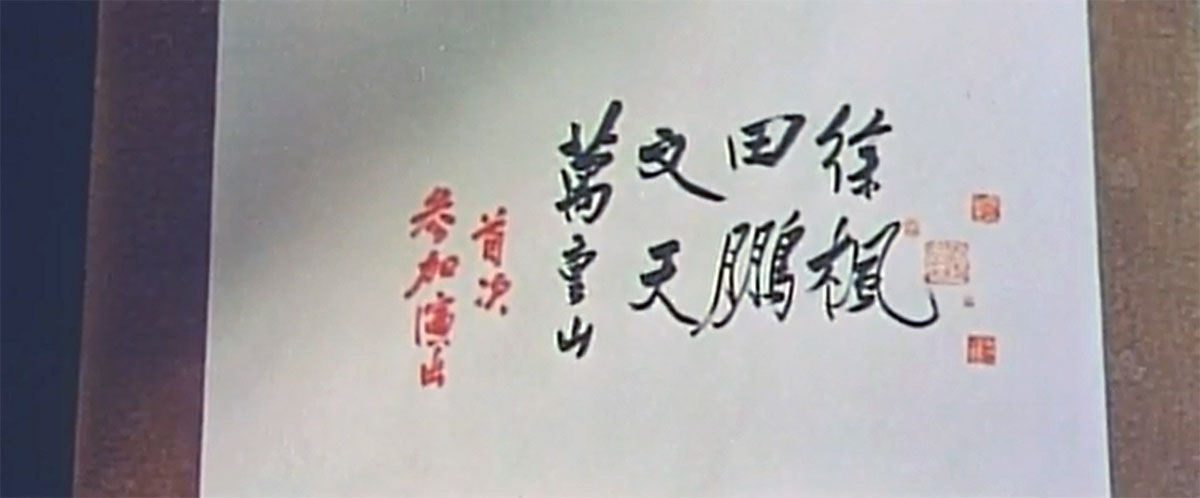 徐楓
田鵬
文天
萬重山
首次
參加演出